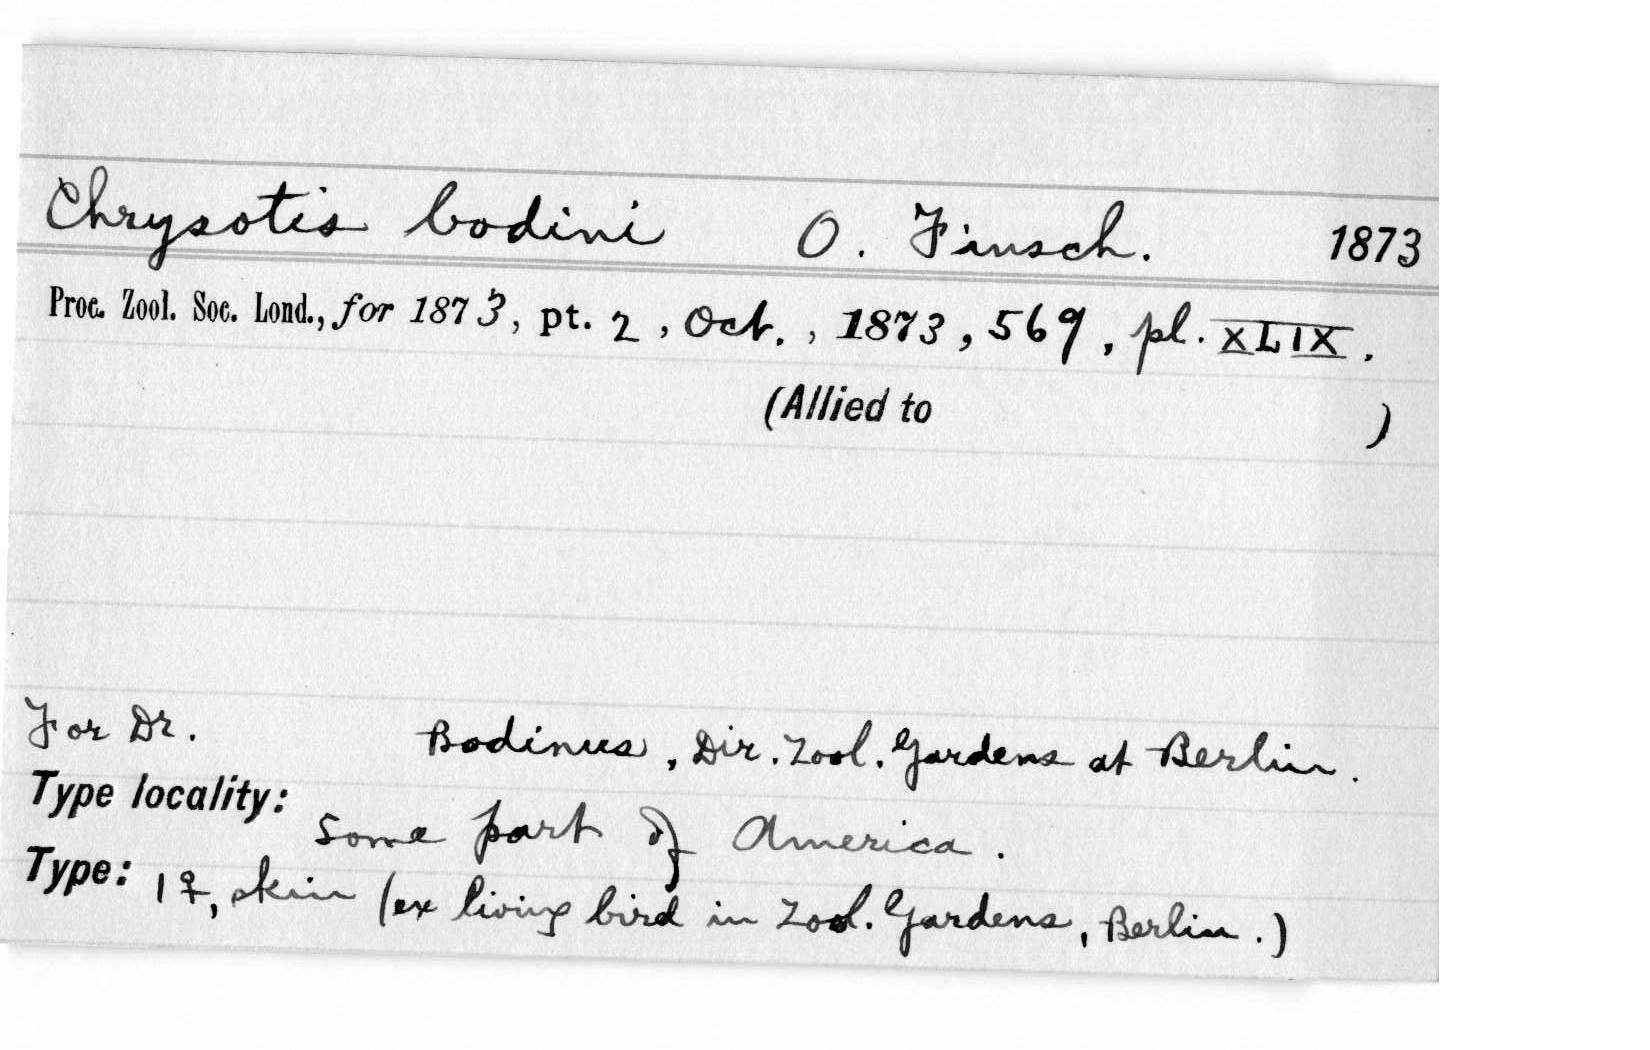 Chrysotis bodini O. Finsch. 1873
Proc. Zool. Soc. Lond., for 1873, pt. 2, Oct., 1873, 569, pl. XLIX.
(Allied to )
For Dr. Bodinus, Dir. Zool. Gardens at Berlin.
Type locality: Some part of America.
Type: 1 ♀, skin (ex living bird in Zool. Gardens, Berlin.)